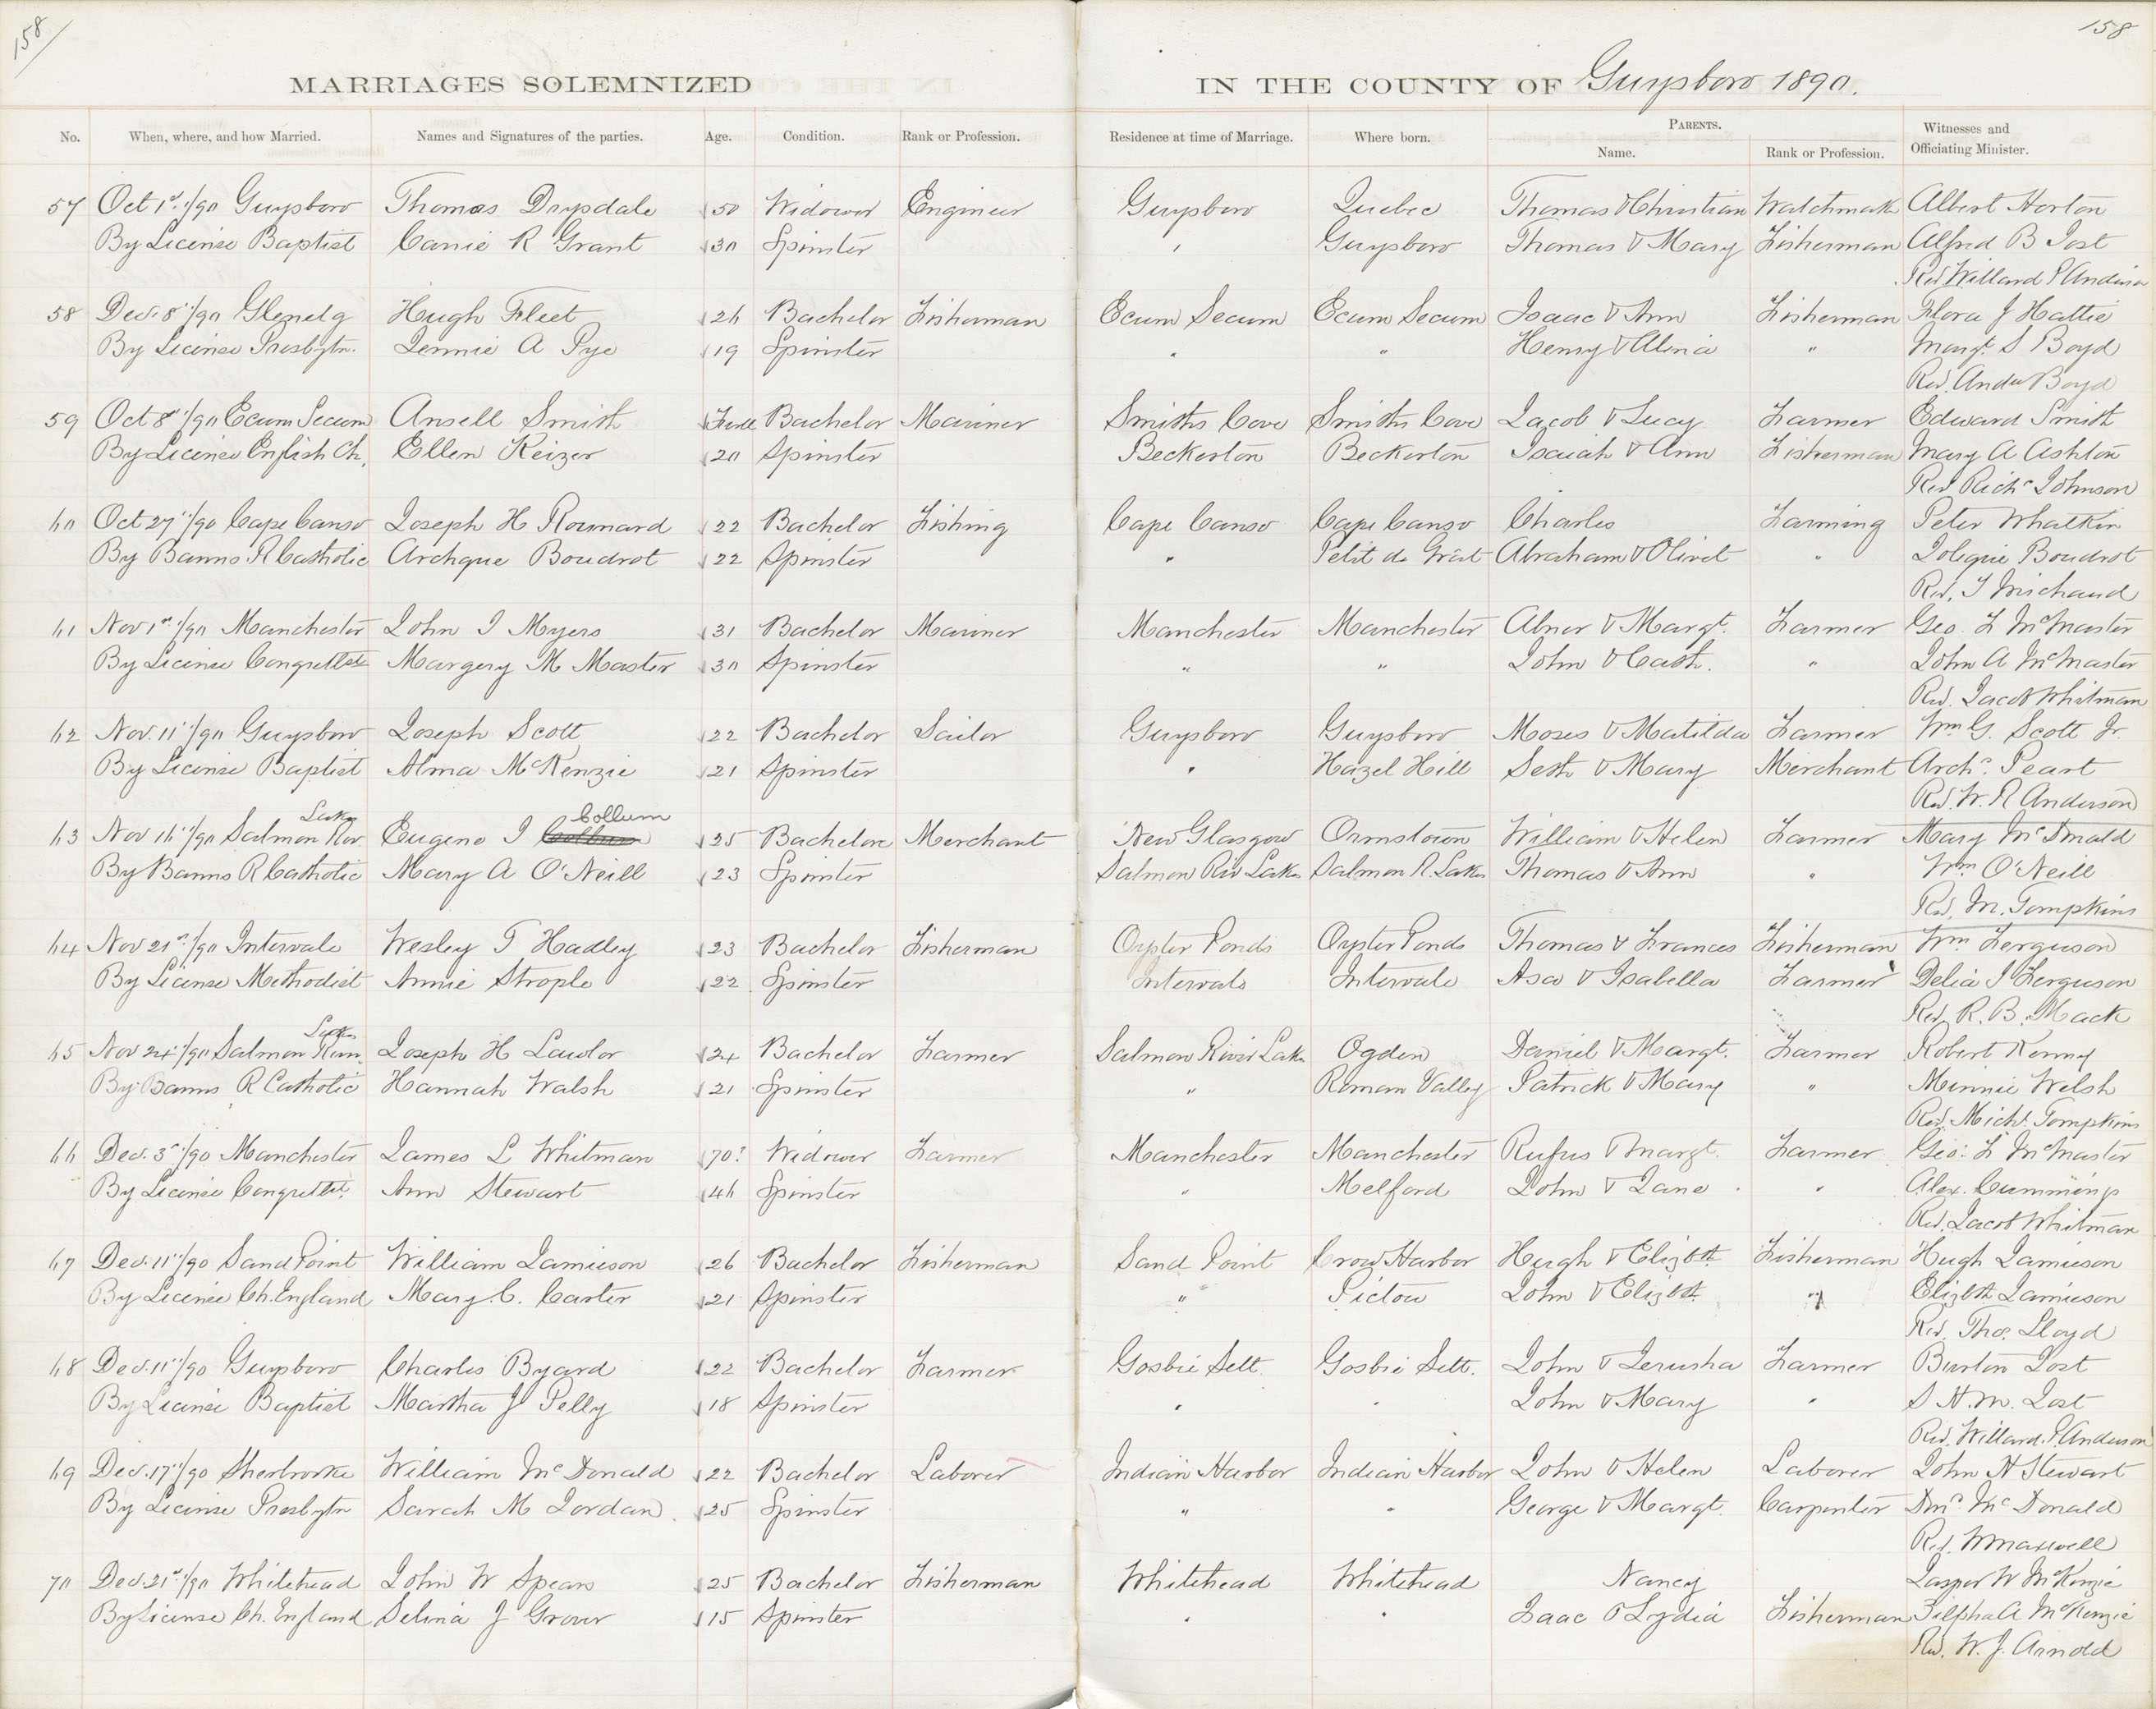 158 158
MARRIAGES SOLEMNIZED IN THE COUNTY OF Guysboro 1890.
No. When, where, and how Married. Names and Signatures of the parties. Age. Condition. Rank or Profession. Residence at time of Marriage. Where born. PARENTS. Name. Rank or Profession. Witnesses and Officiating Minister.
57 Oct 1st/90 Guysboro Thomas Drysdale 50 Widower Engineer Guysboro Quebec Thomas & Christian Watchmak Albert Horton
By License Baptist Canie R Grant 30 Spinster " Guysboro Thomas & Mary Fisherman Alfred B Jost
Rev Willard P Anderson
58 Dec. 8"/90 Glenelg Hugh Fleet 26 Bachelor Fisherman Ecum Secum Ecum Secum Isaac & Ann Fisherman Flora J Hattie
By License Presbytn. Jennie A Pye 19 Spinster " " Henry & Alina " Margt. S Boyd
Rev. Andw Boyd
59 Oct 8"/90 Ecum Secum Ansell Smith Full Bachelor Mariner Smiths Cove Smiths Cove Jacob & Lucy Farmer Edward Smith
By License English Ch. Ellen Keizer 20 Spinster Beckerton Beckerton Isaiah & Ann Fisherman Mary A Ashton
Rev Richd Johnson
60 Oct 27"/90 Cape Canso Joseph H Roumard 22 Bachelor Fishing Cape Canso Cape Canso Charles Farming Peter Whatkin
By Banns R Catholic Archque Boudrot 22 Spinster " Petit de Grât Abraham & Olivet " Boudrot
Rev. J Michaud
61 Nov 1st/90 Manchester John I Myers 31 Bachelor Mariner Manchester Manchester Abner & Margt. Farmer Geo. F McMaster
By License Margery M Master 30 Spinster " " John & Cath. " John A McMaster
Rev. Jacob Whitman
62 Nov. 11"/90 Guysboro Joseph Scott 22 Bachelor Sailor Guysboro Guysboro Moses & Matilda Farmer Wm G. Scott Jr.
By License Baptist Alma McKenzie 21 Spinster " Hazel Hill Seth & Mary Merchant Archd. Peart
Rev. W. P. Anderson
Lakes Collum
63 Nov 16"/90 Salmon Riv. Eugene I 25 Bachelor Merchant New Glasgow Ormstown William & Helen Farmer Mary McDonald
By Banns R Catholic Mary A O'Neill 23 Spinster Salmon Riv Lakes Salmon R. Lakes Thomas & Ann " Wm O'Neill
Rev. M. Tompkins
64 Nov 21st/90 Intervale Wesley T Hadley 23 Bachelor Fisherman Oyster Ponds Oyster Ponds Thomas & Frances Fisherman Wm Ferguson
By License Methodist Annie Strople 22 Spinster Intervale Intervale Asa & Isabella Farmer Delia J Ferguson
Rev. R. B. Mack
Lakes
65 Nov 24"/90 Salmon River Joseph H Lawlor 24 Bachelor Farmer Salmon River Lake Ogden Daniel & Margt. Farmer Robert Kenny
By Banns R Catholic Hannah Walsh 21 Spinster " Roman Valley Patrick & Mary " Minnie Welsh
Rev. Michl. Tompkins
66 Dec. 3rd/90 Manchester James L Whitman 70? Widower Farmer Manchester Manchester Rufus & Margt. Farmer Geo: F McMaster
By License Ann Stewart 46 Spinster " Melford John & Jane " Alex. Cummings
Rev. Jacob Whitman
67 Dec. 11"/90 Sand Point William Jamieson 26 Bachelor Fisherman Sand Point Crow Harbor Hugh & Elizbth Fisherman Hugh Jamieson
By License Ch. England Mary C. Carter 21 Spinster " Pictou John & Elizbth " Elizbth Jamieson
Rev. Thos. Lloyd
68 Dec. 11"/90 Guysboro Charles Byard 22 Bachelor Farmer Gosbie Sett. Gosbie Sett. John & Jerusha Farmer Burton Jost
By License Baptist Martha J Pelly 18 Spinster " " John & Mary " S. H. M. Jost
Rev. Willard. P. Anderson
69 Dec. 17"/90 Sherbrooke William McDonald 22 Bachelor Laborer Indian Harbor Indian Harbor John & Helen Laborer John H Stewart
By License Presbytn Sarah M Jordan. 25 Spinster " " George & Margt. Carpenter Dnd. McDonald
Rev. W Maxwell
70 Dec. 21st/90 Whitehead John W Spears 25 Bachelor Fisherman Whitehead Whitehead Nancy Jasper W McKenzie
By License Ch. England Selina J Grover 15 Spinster " " Isaac & Lydia Fisherman Zilpha A McKenzie
Rev. W. J. Arnold